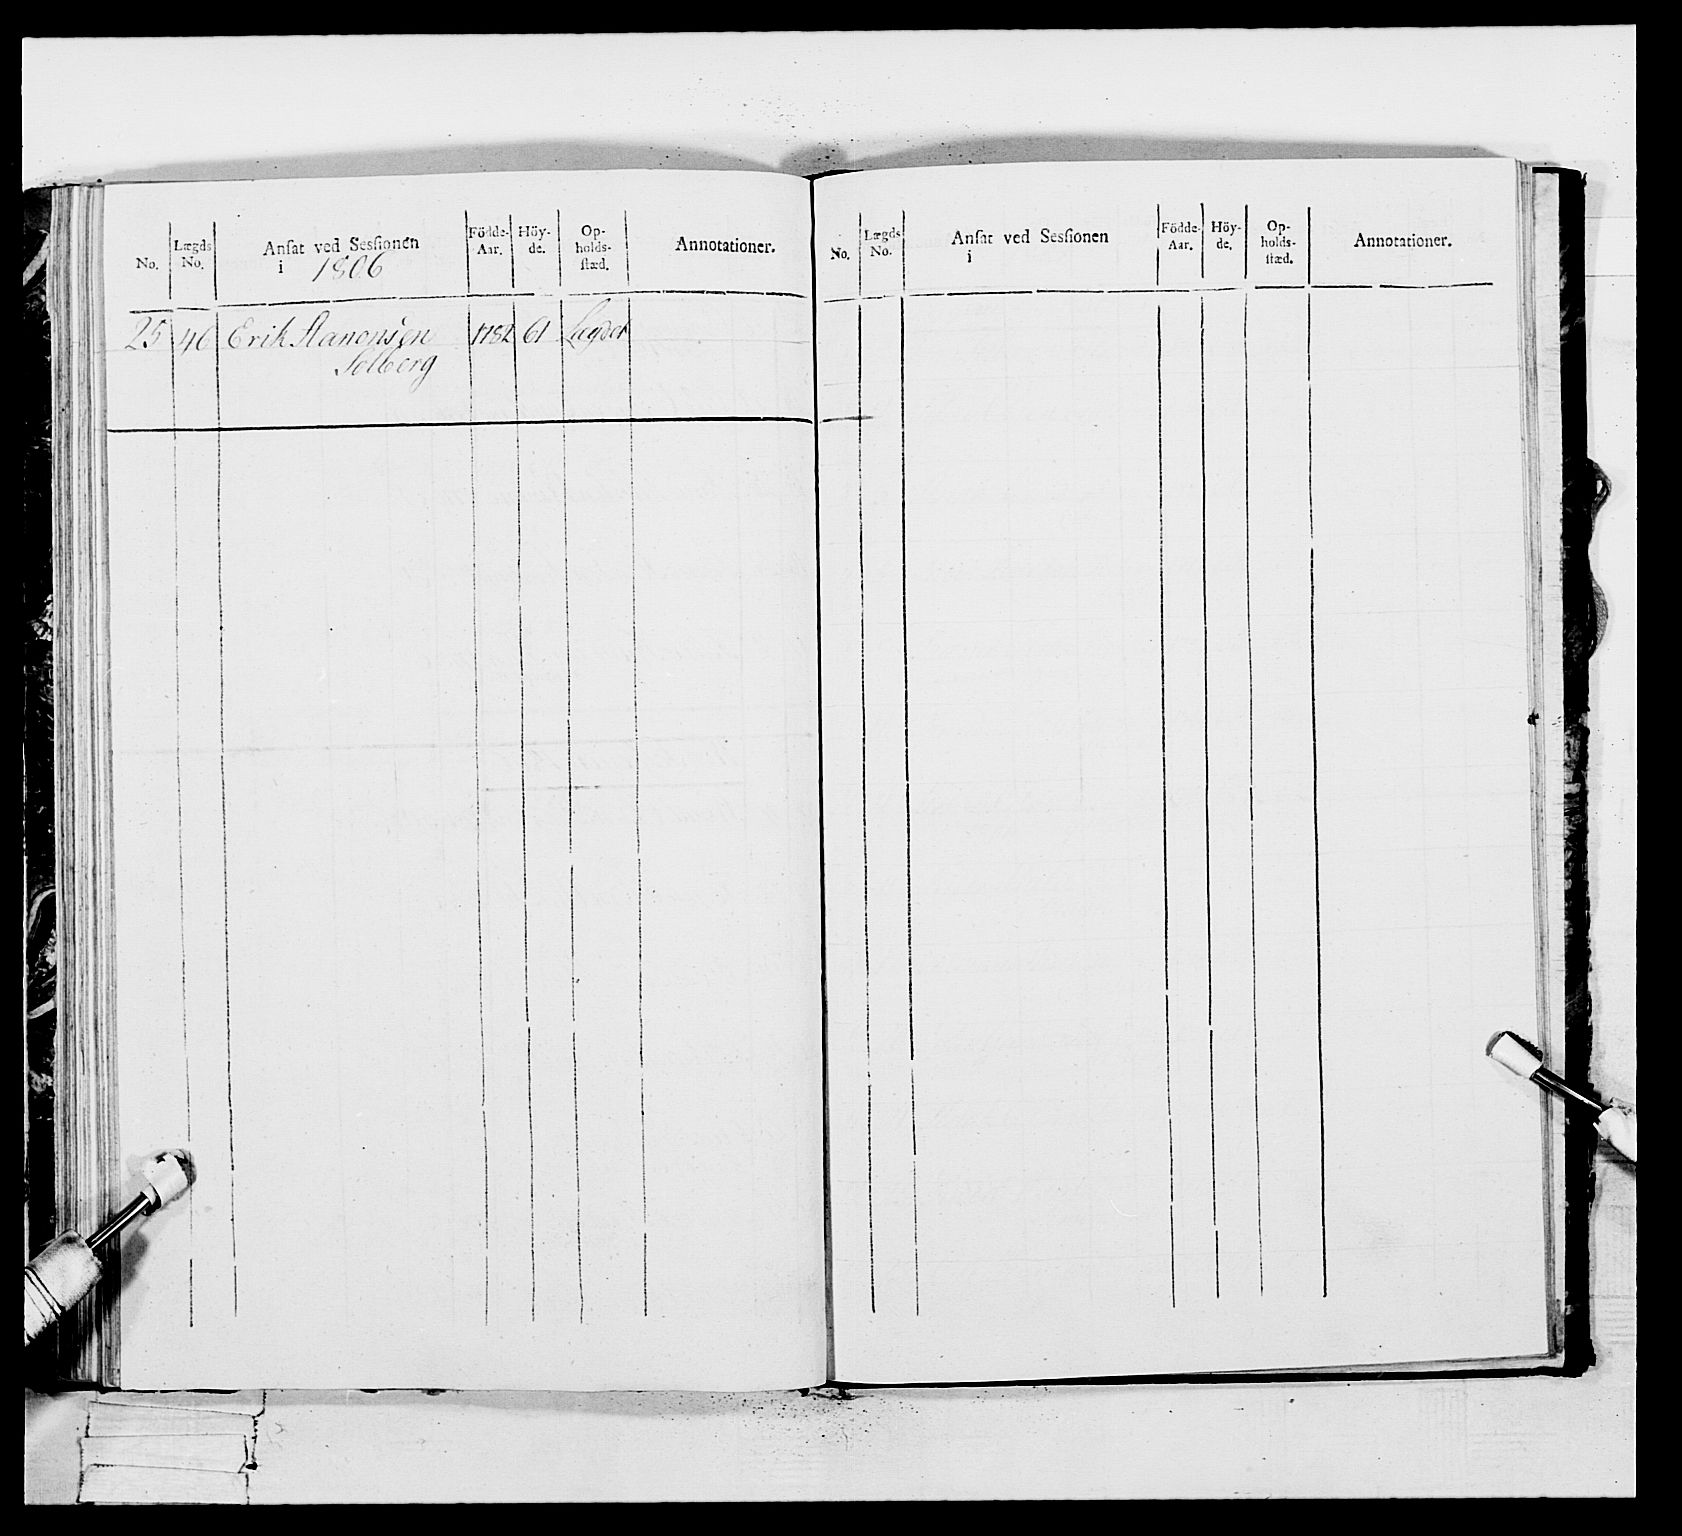 No. Lægds No. Ansat ved Sessionen i 1806 Födde-Aar. Höy-de. Op-holds-stæd. Annotationer.
25 46 Erik Hansen 1782 61 Lægdet
Solberg
No. Lægds No. Ansat ved Sessionen i Födde-Aar. Höy-de. Op-holds-stæd. Annotationer.